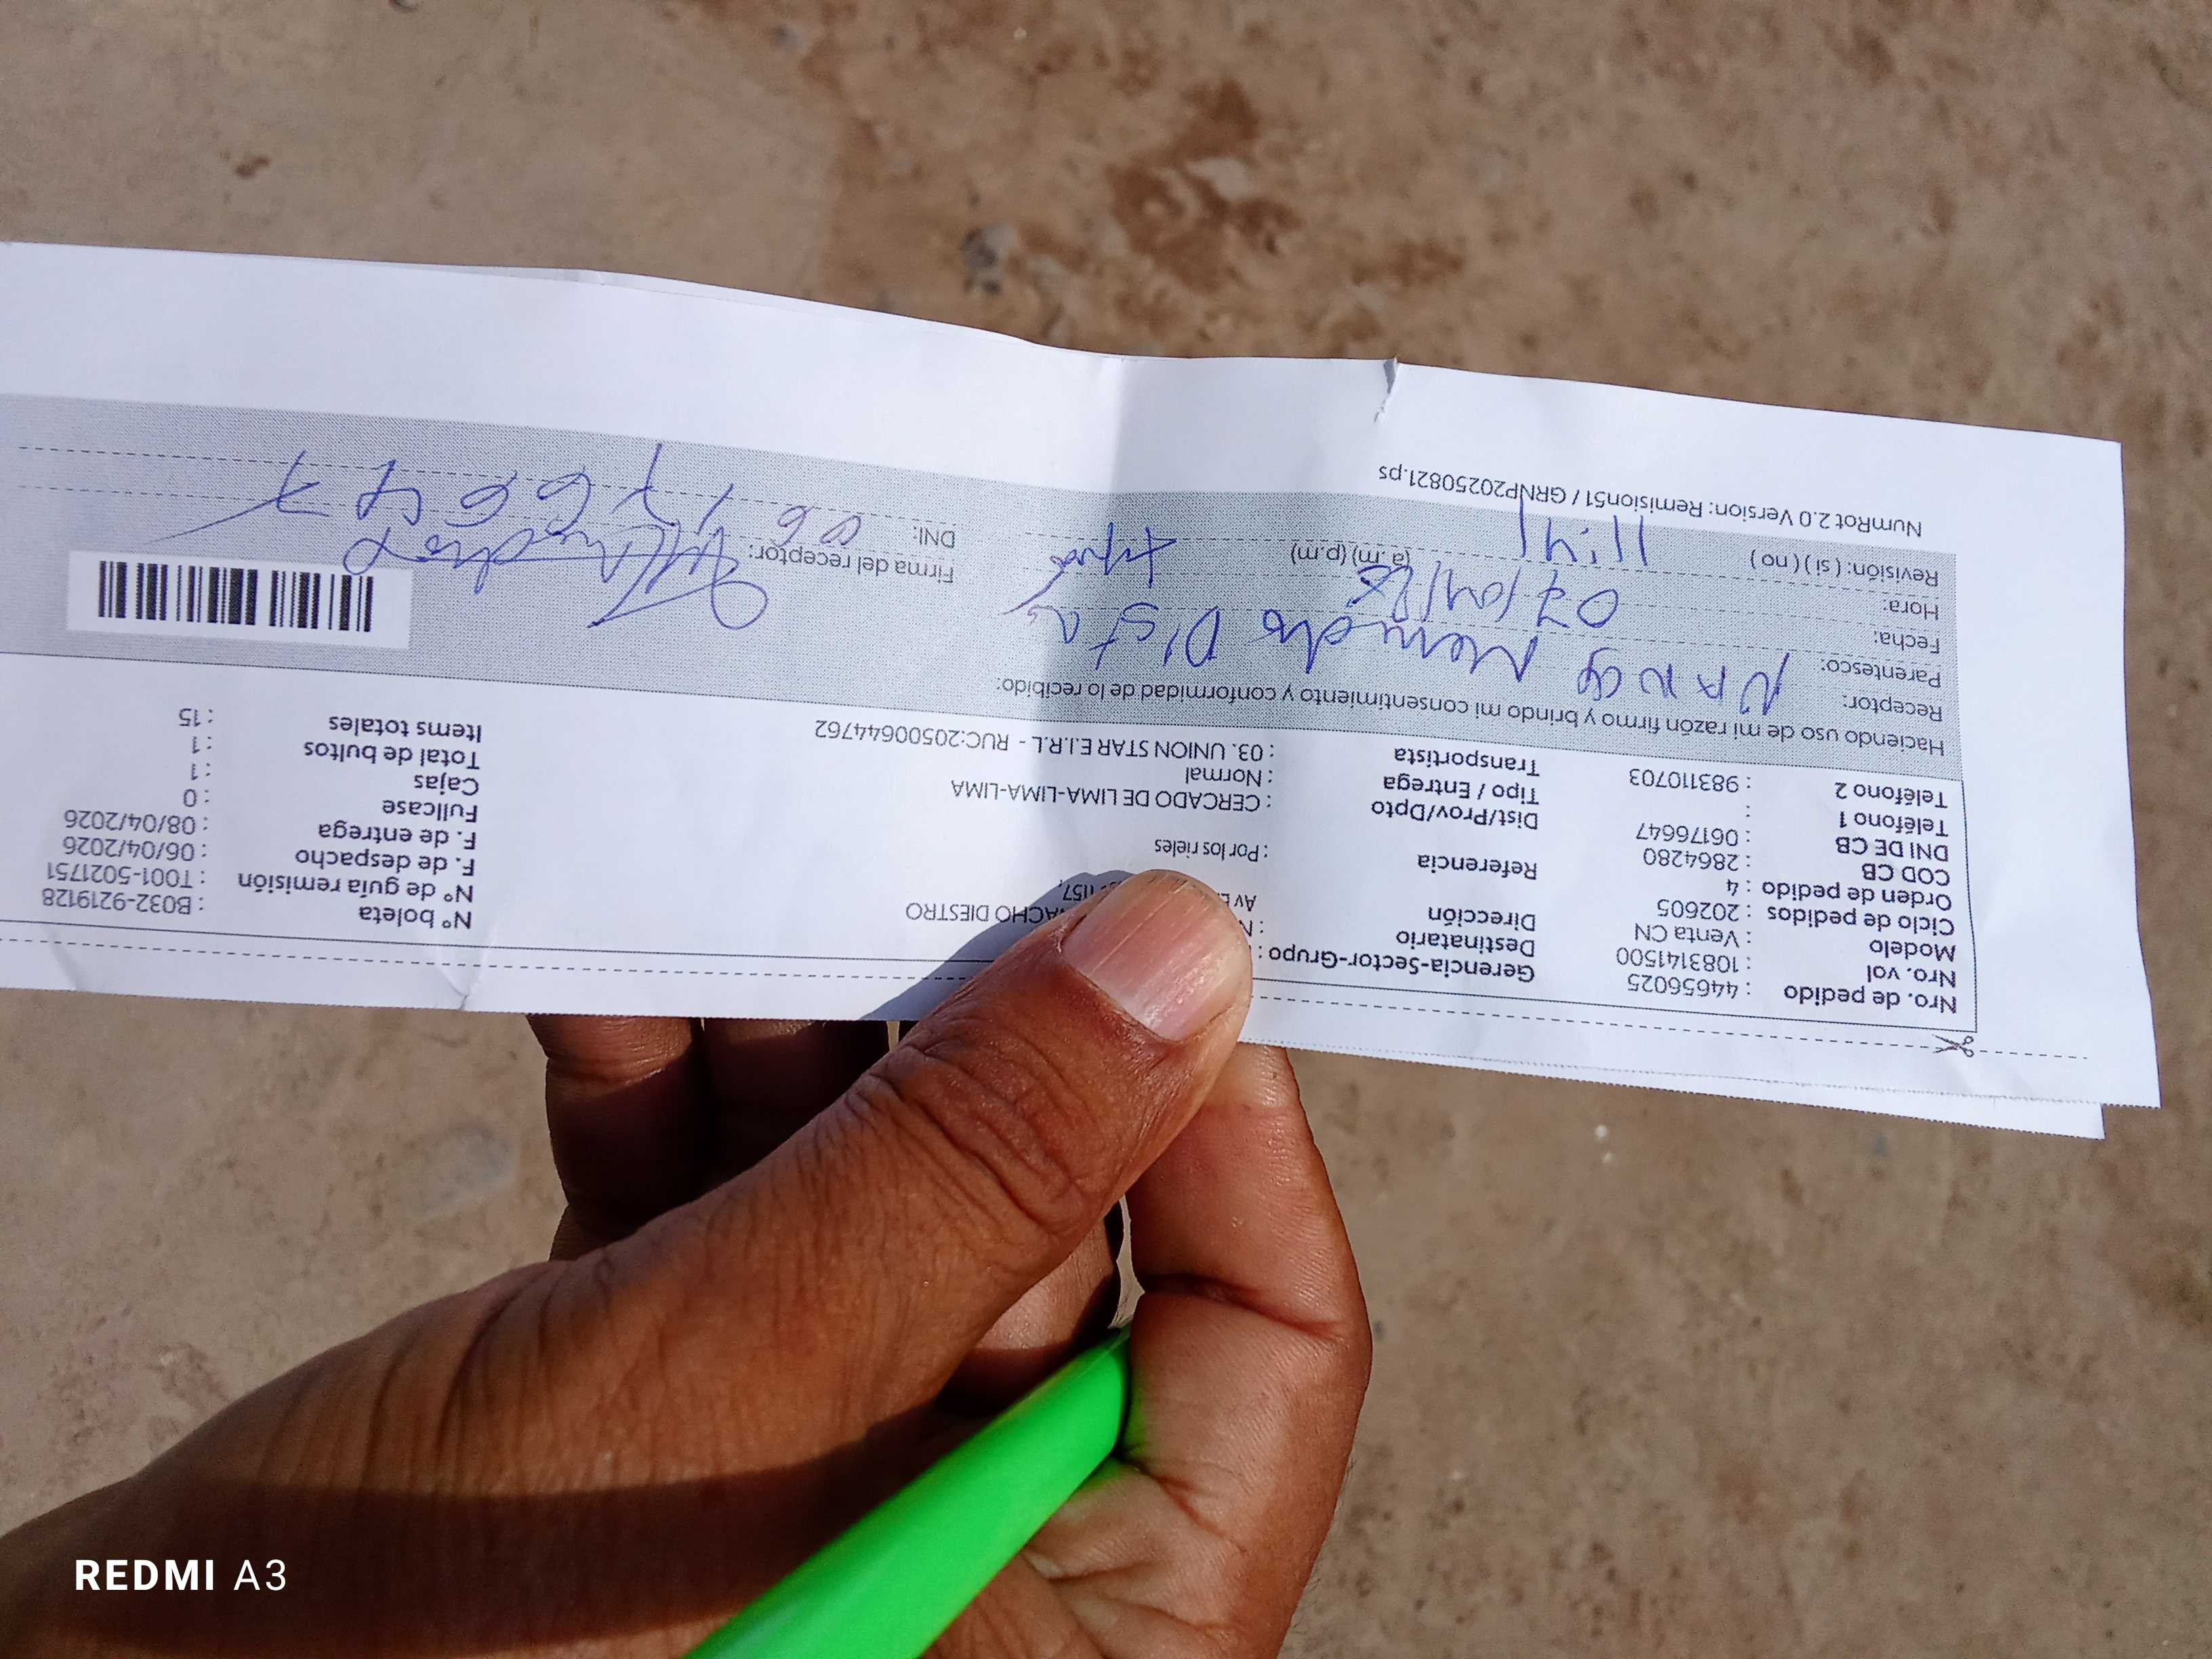 Nro. de pedido : 44656025
Nro. vol : 1083141500
Modelo : Venta CN
Ciclo de pedidos : 202605
Orden de pedido : 4
COD CB : 2864280
DNI DE CB : 06176647
Teléfono 1 :
Teléfono 2 : 983110703
Gerencia-Sector-Grupo :
Destinatario : DIESTRO
Dirección Av
Referencia : Por los rieles
Dist/Prov/Dpto : CERCADO DE LIMA-LIMA-LIMA
Tipo / Entrega : Normal
Transportista : 03. UNION STAR E.I.R.L - RUC:20500644762
N° boleta : B032-9219128
N° de guía remisión : T001-5021751
F. de despacho : 06/04/2026
F. de entrega : 08/04/2026
Fullcase : 0
Cajas : 1
Total de bultos : 1
Items totales : 15
Haciendo uso de mi razón firmo y brindo mi consentimiento y conformidad de lo recibido:
Receptor: Nancy
Parentesco:
Fecha: 07/04/26
Hora: (a.m) (p.m)
Revisión: ( si ) ( no ) 11:41
Firma del receptor:
DNI: 06176647
NumRot 2.0 Version: Remision51 / GRNP20250821.ps
REDMI A3